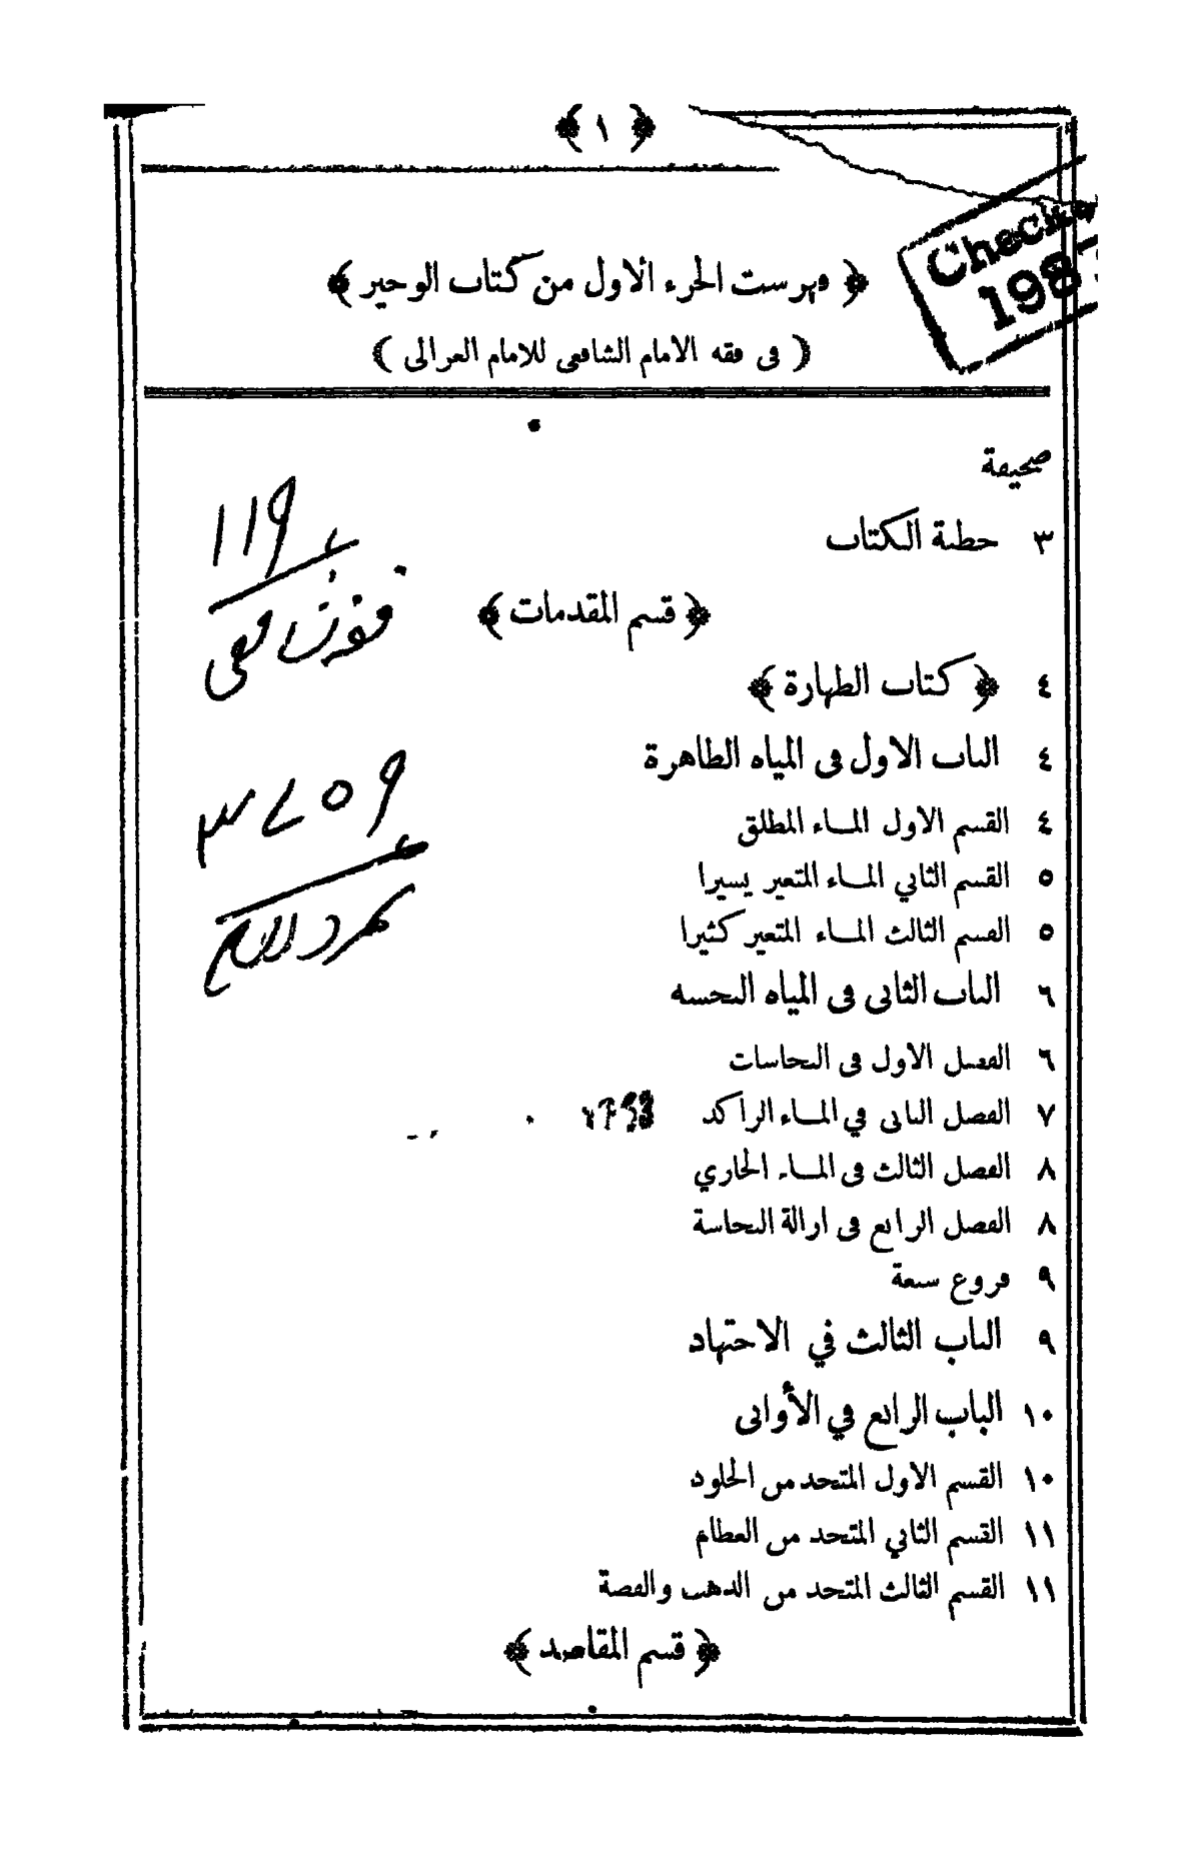 ﴿ ١ ﴾
Check
198
﴿ فهرست الجزء الاول من كتاب الوجيز ﴾
( فى فقه الامام الشافعى للامام الغزالى )
صحيفة
٣ خطبة الكتاب
١١٩
﴿ قسم المقدمات ﴾
٤ ﴿ كتاب الطهارة ﴾
٤ الباب الاول فى المياه الطاهرة
٤ القسم الاول المـاء المطلق
٥ القسم الثاني المـاء المتغير يسيرا
٥ القسم الثالث المـاء المتغير كثيرا
٦ الباب الثانى فى المياه النجسه
٦ الفصل الاول فى النجاسات
٧ الفصل الثانى في المـاء الراكد
٨ الفصل الثالث فى المـاء الجاري
٨ الفصل الرابع فى ازالة النجاسة
٩ فروع سبعة
٩ الباب الثالث في الاجتهاد
١٠ الباب الرابع في الأوانى
١٠ القسم الاول المتخذ من الجلود
١١ القسم الثاني المتخذ من العظام
١١ القسم الثالث المتخذ من الذهب والفضة
﴿ قسم المقاصد ﴾